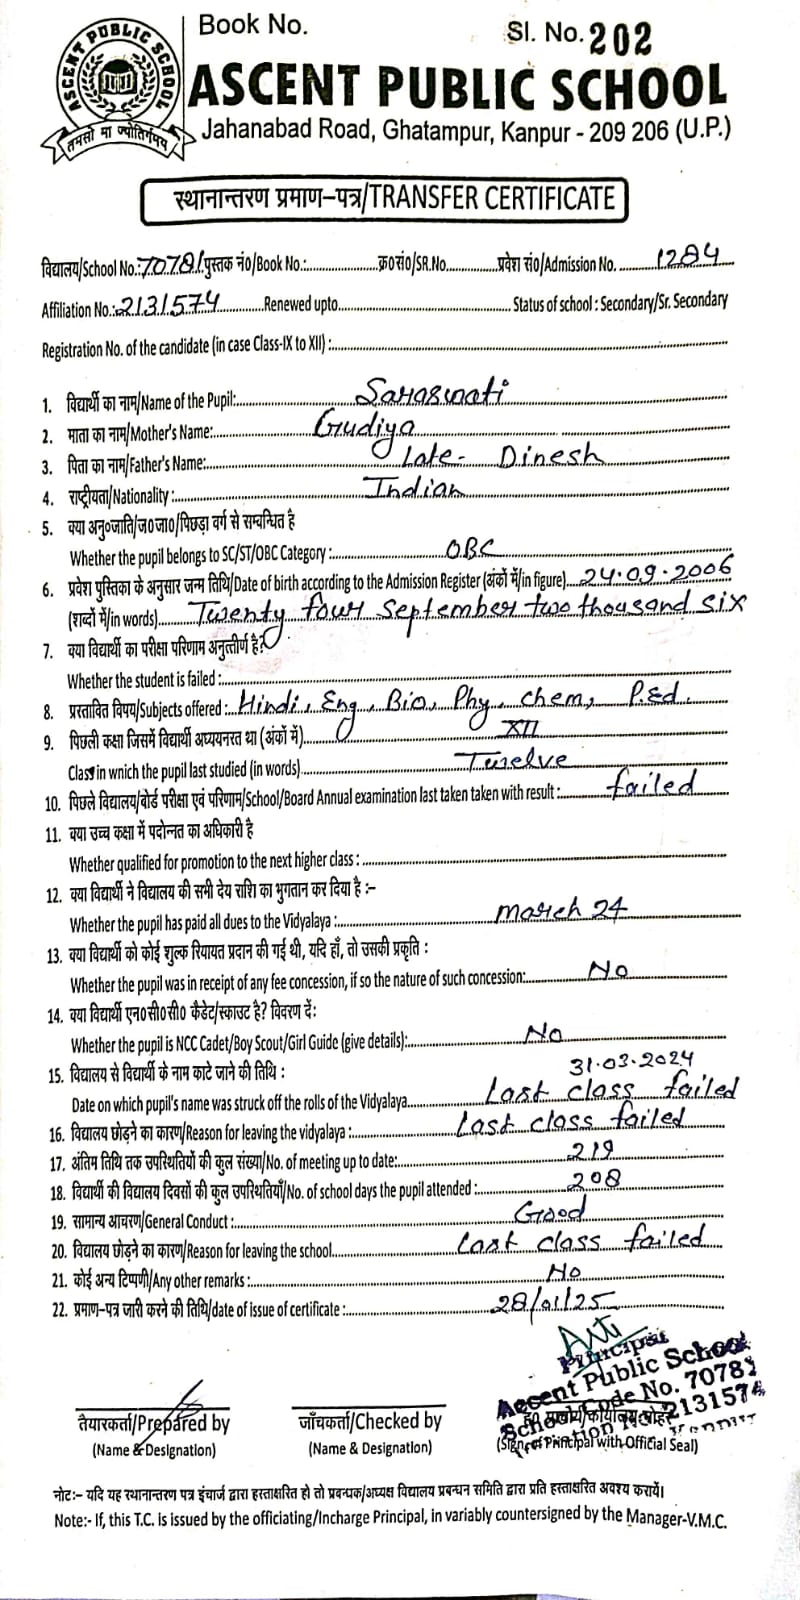 ASCENT PUBLIC SCHOOL
तमसो मा ज्योतिर्गमय
Book No.
Sl. No. 202
ASCENT PUBLIC SCHOOL
Jahanabad Road, Ghatampur, Kanpur - 209 206 (U.P.)
स्थानान्तरण प्रमाण–पत्र/TRANSFER CERTIFICATE
विद्यालय/School No.:70781 पुस्तक नं०/Book No.:............... क्र०सं०/SR.No............. प्रवेश सं०/Admission No. .........1284....
Affiliation No.:.2131574...........Renewed upto........................................ Status of school : Secondary/Sr. Secondary
Registration No. of the candidate (in case Class-IX to XII) :................................................
1. विद्यार्थी का नाम/Name of the Pupil:................Saraswati................
2. माता का नाम/Mother's Name:................Gudiya................
3. पिता का नाम/Father's Name:................Late- Dinesh................
4. राष्ट्रीयता/Nationality :................Indian................
5. क्या अनु०जाति/ज०जा०/पिछड़ा वर्ग से सम्बन्धित है
Whether the pupil belongs to SC/ST/OBC Category :................OBC................
6. प्रवेश पुस्तिका के अनुसार जन्म तिथि/Date of birth according to the Admission Register (अंकों में/in figure)....24.09.2006
(शब्दों में/in words).......Twenty four September two thousand six
7. क्या विद्यार्थी का परीक्षा परिणाम अनुत्तीर्ण है?
Whether the student is failed :................................................
8. प्रस्तावित विषय/Subjects offered :..Hindi, Eng, Bio, Phy, Chem, P.Ed.
9. पिछली कक्षा जिसमें विद्यार्थी अध्ययनरत था (अंकों में)................XII................
Class in wnich the pupil last studied (in words)................Twelve................
10. पिछले विद्यालय/बोर्ड परीक्षा एवं परिणाम/School/Board Annual examination last taken taken with result :........failed....
11. क्या उच्च कक्षा में पदोन्नत का अधिकारी है
Whether qualified for promotion to the next higher class :................................................
12. क्या विद्यार्थी ने विद्यालय की सभी देय राशि का भुगतान कर दिया है :–
Whether the pupil has paid all dues to the Vidyalaya :................March 24................
13. क्या विद्यार्थी को कोई शुल्क रियायत प्रदान की गई थी, यदि हाँ, तो उसकी प्रकृति :
Whether the pupil was in receipt of any fee concession, if so the nature of such concession:............No............
14. क्या विद्यार्थी एन०सी०सी० कैडेट/स्काउट है? विवरण दें:
Whether the pupil is NCC Cadet/Boy Scout/Girl Guide (give details):................No................
15. विद्यालय से विद्यार्थी के नाम काटे जाने की तिथि :
31.03.2024
Date on which pupil's name was struck off the rolls of the Vidyalaya............Last class failed
16. विद्यालय छोड़ने का कारण/Reason for leaving the vidyalaya :............Last class failed....
17. अंतिम तिथि तक उपस्थितियों की कुल संख्या/No. of meeting up to date:............219............
18. विद्यार्थी की विद्यालय दिवसों की कुल उपस्थितियाँ/No. of school days the pupil attended :............208............
19. सामान्य आचरण/General Conduct :................Good................
20. विद्यालय छोड़ने का कारण/Reason for leaving the school............Last class failed....
21. कोई अन्य टिप्पणी/Any other remarks :................No................
22. प्रमाण–पत्र जारी करने की तिथि/date of issue of certificate :............28/01/25............
Principal
Ascent Public School
School Code No. 70781
2131574
तैयारकर्ता/Prepared by
जाँचकर्ता/Checked by
(Name & Designation)
(Name & Designation)
(Sign of Principal with Official Seal)
नोट:– यदि यह स्थानान्तरण पत्र इंचार्ज द्वारा हस्ताक्षरित हो तो प्रबन्धक/अध्यक्ष विद्यालय प्रबन्धन समिति द्वारा प्रति हस्ताक्षरित अवश्य करायें।
Note:- If, this T.C. is issued by the officiating/Incharge Principal, in variably countersigned by the Manager-V.M.C.